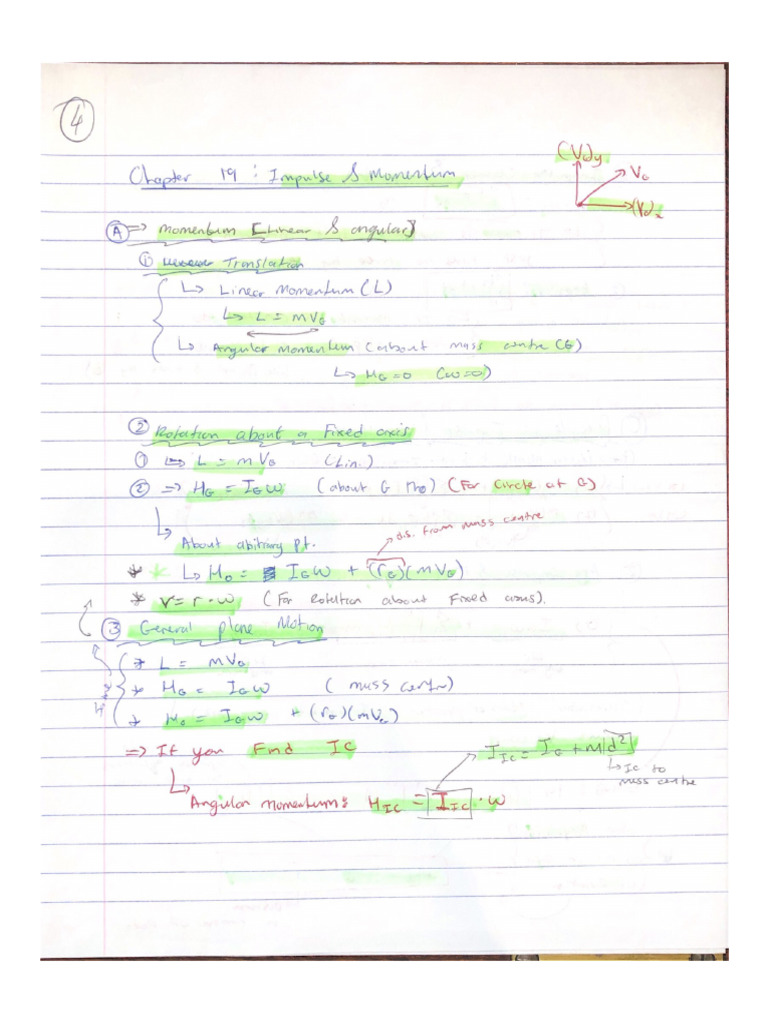 4
Chapter 19 : Impulse & Momentum
(VG)y
VG
(VG)x
A => Momentum [Linear & angular]
① Translation
↳ Linear Momentum (L)
↳ L = mVG
↳ Angular momentum (about mass centre (G)
↳ HG = 0 (ω=0)
② Rotation about a Fixed axis
① ↳ L = mVG (Lin.)
② => HG = IGω (about G) (For Circle at G)
dis. from mass centre
↳ About abitrary pt.
* ↳ Ho = IGω + (rG)(mVG)
* V = r·ω (For Rotation about Fixed axis).
③ General plane Motion
* L = mVG
* HG = IGω (mass centre)
* Ho = IGω + (rG)(mVG)
=> If you Find IC
IIC = IG + m d²
↳ IC to mass centre
↳ Angular Momentum: HIC = IIC · ω